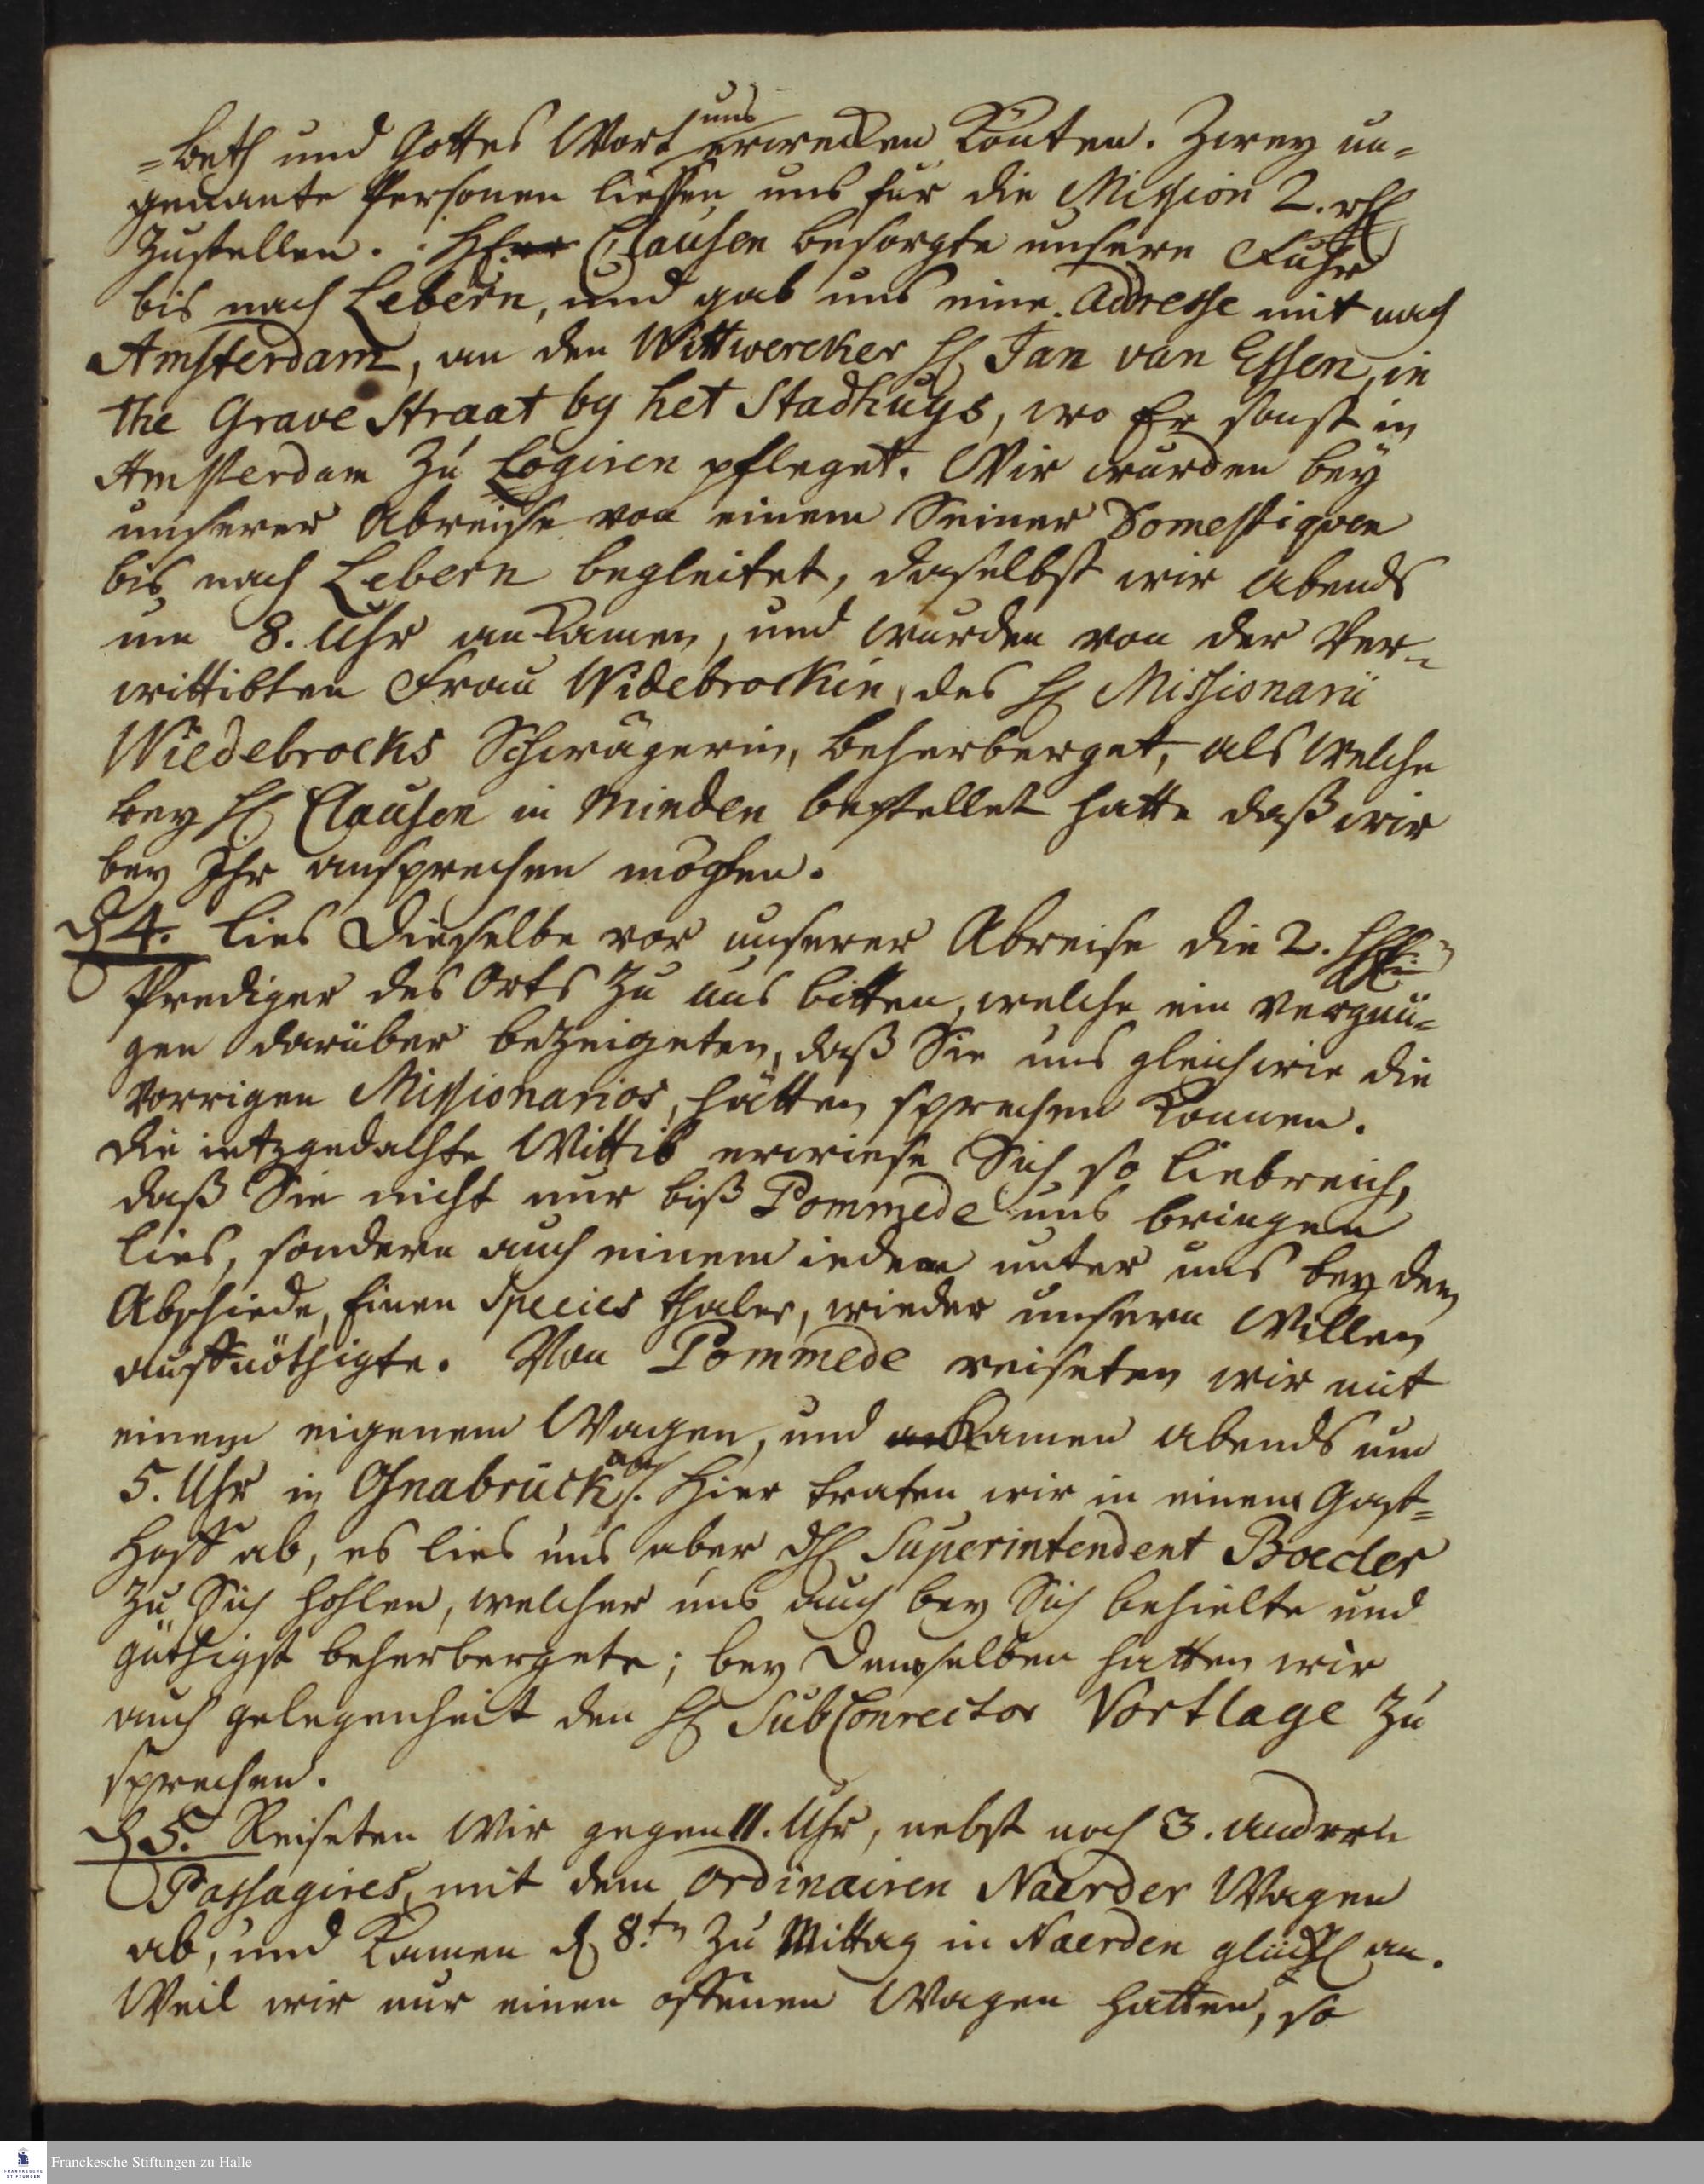 =beth und Gottes Wort uns erwecken könten. Zwey un=
genante Personen liessen uns für die Mission 2. rthl
zustellen. H. Clausen besorgte unsere Fuhr
bis nach Lebern, und gab uns eine Addresse mit nach
Amsterdam, an den Wittwercker H. Jan van Essen, in
the Grave Straat by het Stadhuys, wo Er sonst in
Amsterdam zu Logiren pfleget. Wir wurden bey
unserer Abreise von einem Seiner Domestiquen
bis nach Lebern begleitet, daselbst wir Abends
um 8. Uhr ankamen, und wurden von der Ver=
wittibten Frau Widebrockin, des H. Missionarii
Wiedebrocks Schwägerin, beherberget, als welche
bey H. Clausen in Minden bestellet hatte daß wir
bey Ihr ansprechen möchten.
d. 4. lies Dieselbe vor unserer Abreise die 2. HH.
Prediger des Orts zu uns bitten, welche ein Vergnü=
gen darüber bezeigeten, daß Sie uns gleichwie die
vorrigen Missionarios, hätten sprechen können.
die ietzgedachte Wittib erwiese Sich so liebreich,
daß Sie nicht nur biß Pommede uns bringen
lies, sondern auch einem ieden unter uns bey dem
Abschiede, Einen Species thaler, wieder unsern Willen
auffnöthigte. Von Pommede reiseten wir mit
einem eigenem Wagen, und kamen abends um
5. Uhr in Osnabrück an. Hier traten wir in einem Gast=
Hoff ab, es lies uns aber dH. Superintendent Boecler
zu Sich hohlen, welcher uns auch bey Sich behielte und
güthigst beherbergete; bey Demselben hatten wir
auch gelegenheit den H. SubConrector Vortlage zu
sprechen.
d. 5. Reiseten Wir gegen 11. Uhr, nebst noch 3. andern
Passagires, mit dem ordinairen Naerder Wagen
ab, und kamen d. 8.tn zu Mittag in Naerden glückl an.
Weil wir nur einen offenen Wagen hatten, so
Franckesche Stiftungen zu Halle
FRANCKESCHE
STIFTUNGEN